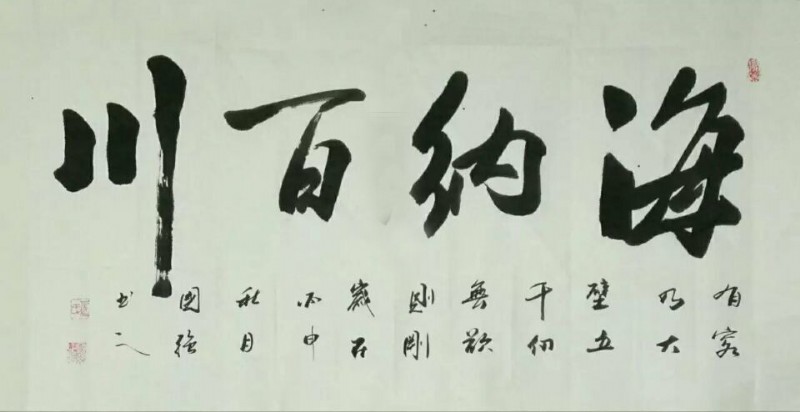 海纳百川
有容
乃大
壁立
千仞
無欲
則剛
歲在
丙申
秋月
国强
书之